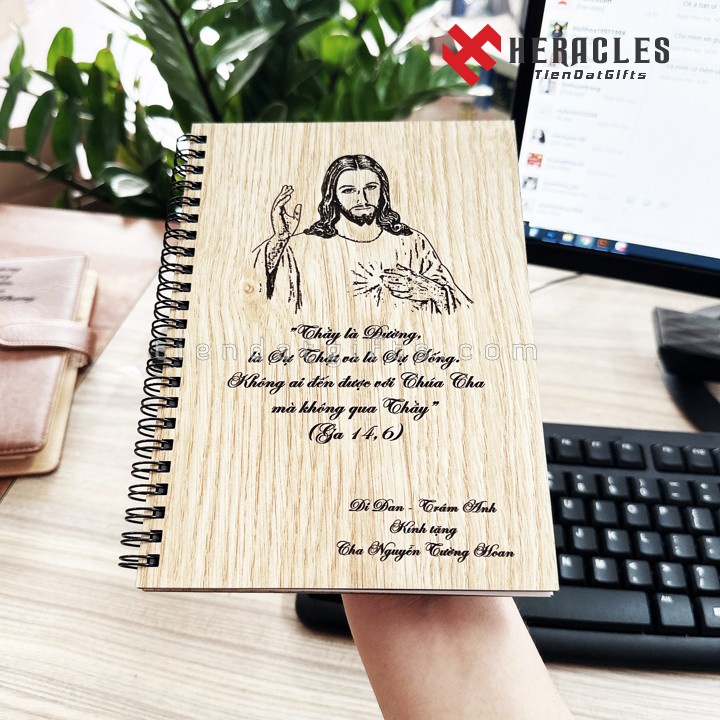 HERACLES
TienDatGifts
"Thầy là Đường,
là Sự Thật và là Sự Sống.
Không ai đến được với Chúa Cha
mà không qua Thầy"
(Ga 14,6)
Dì Đan - Trâm Anh
Kính tặng
Cha Nguyễn Tường Hoan